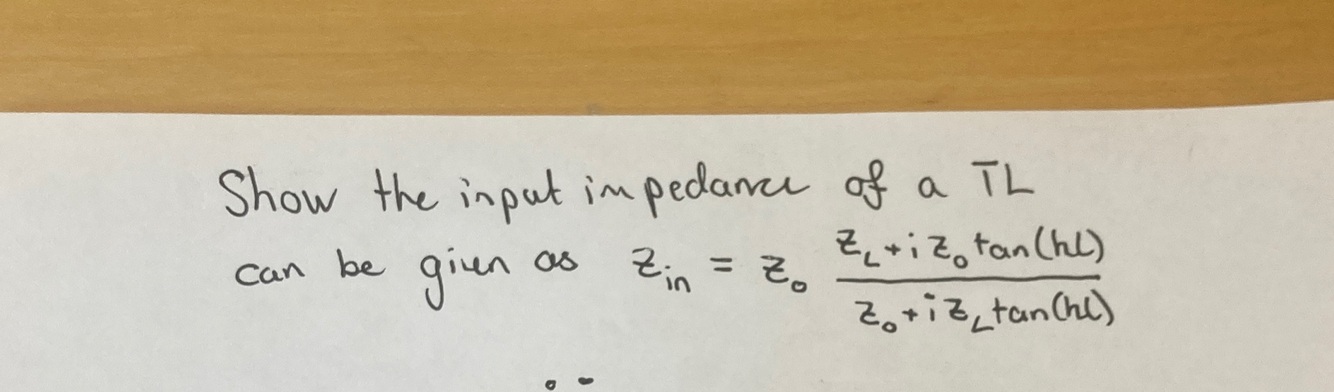 Show the input impedance of a TL
can be given as Z_in = Z_0 (Z_L + i Z_0 tan(hl)) / (Z_0 + i Z_L tan(hl))